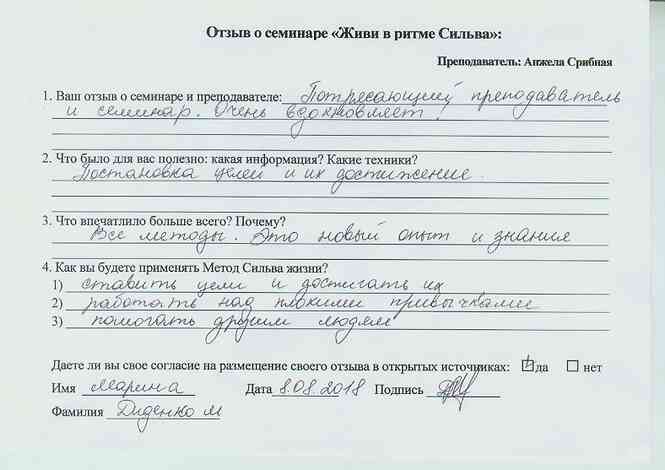 Отзыв о семинаре «Живи в ритме Сильва»:
Преподаватель: Анжела Срибная
1. Ваш отзыв о семинаре и преподавателе: Потрясающий преподаватель
и семинар. Очень вдохновляет!
2. Что было для вас полезно: какая информация? Какие техники?
Постановка целей и их достижение.
3. Что впечатлило больше всего? Почему?
Все методы. Это новый опыт и знания
4. Как вы будете применять Метод Сильва жизни?
1) ставить цели и достигать их
2) работать над плохими привычками
3) помогать другим людям
Даете ли вы свое согласие на размещение своего отзыва в открытых источниках: да нет
Имя Марина Дата 8.08.2018 Подпись
Фамилия Диденко М